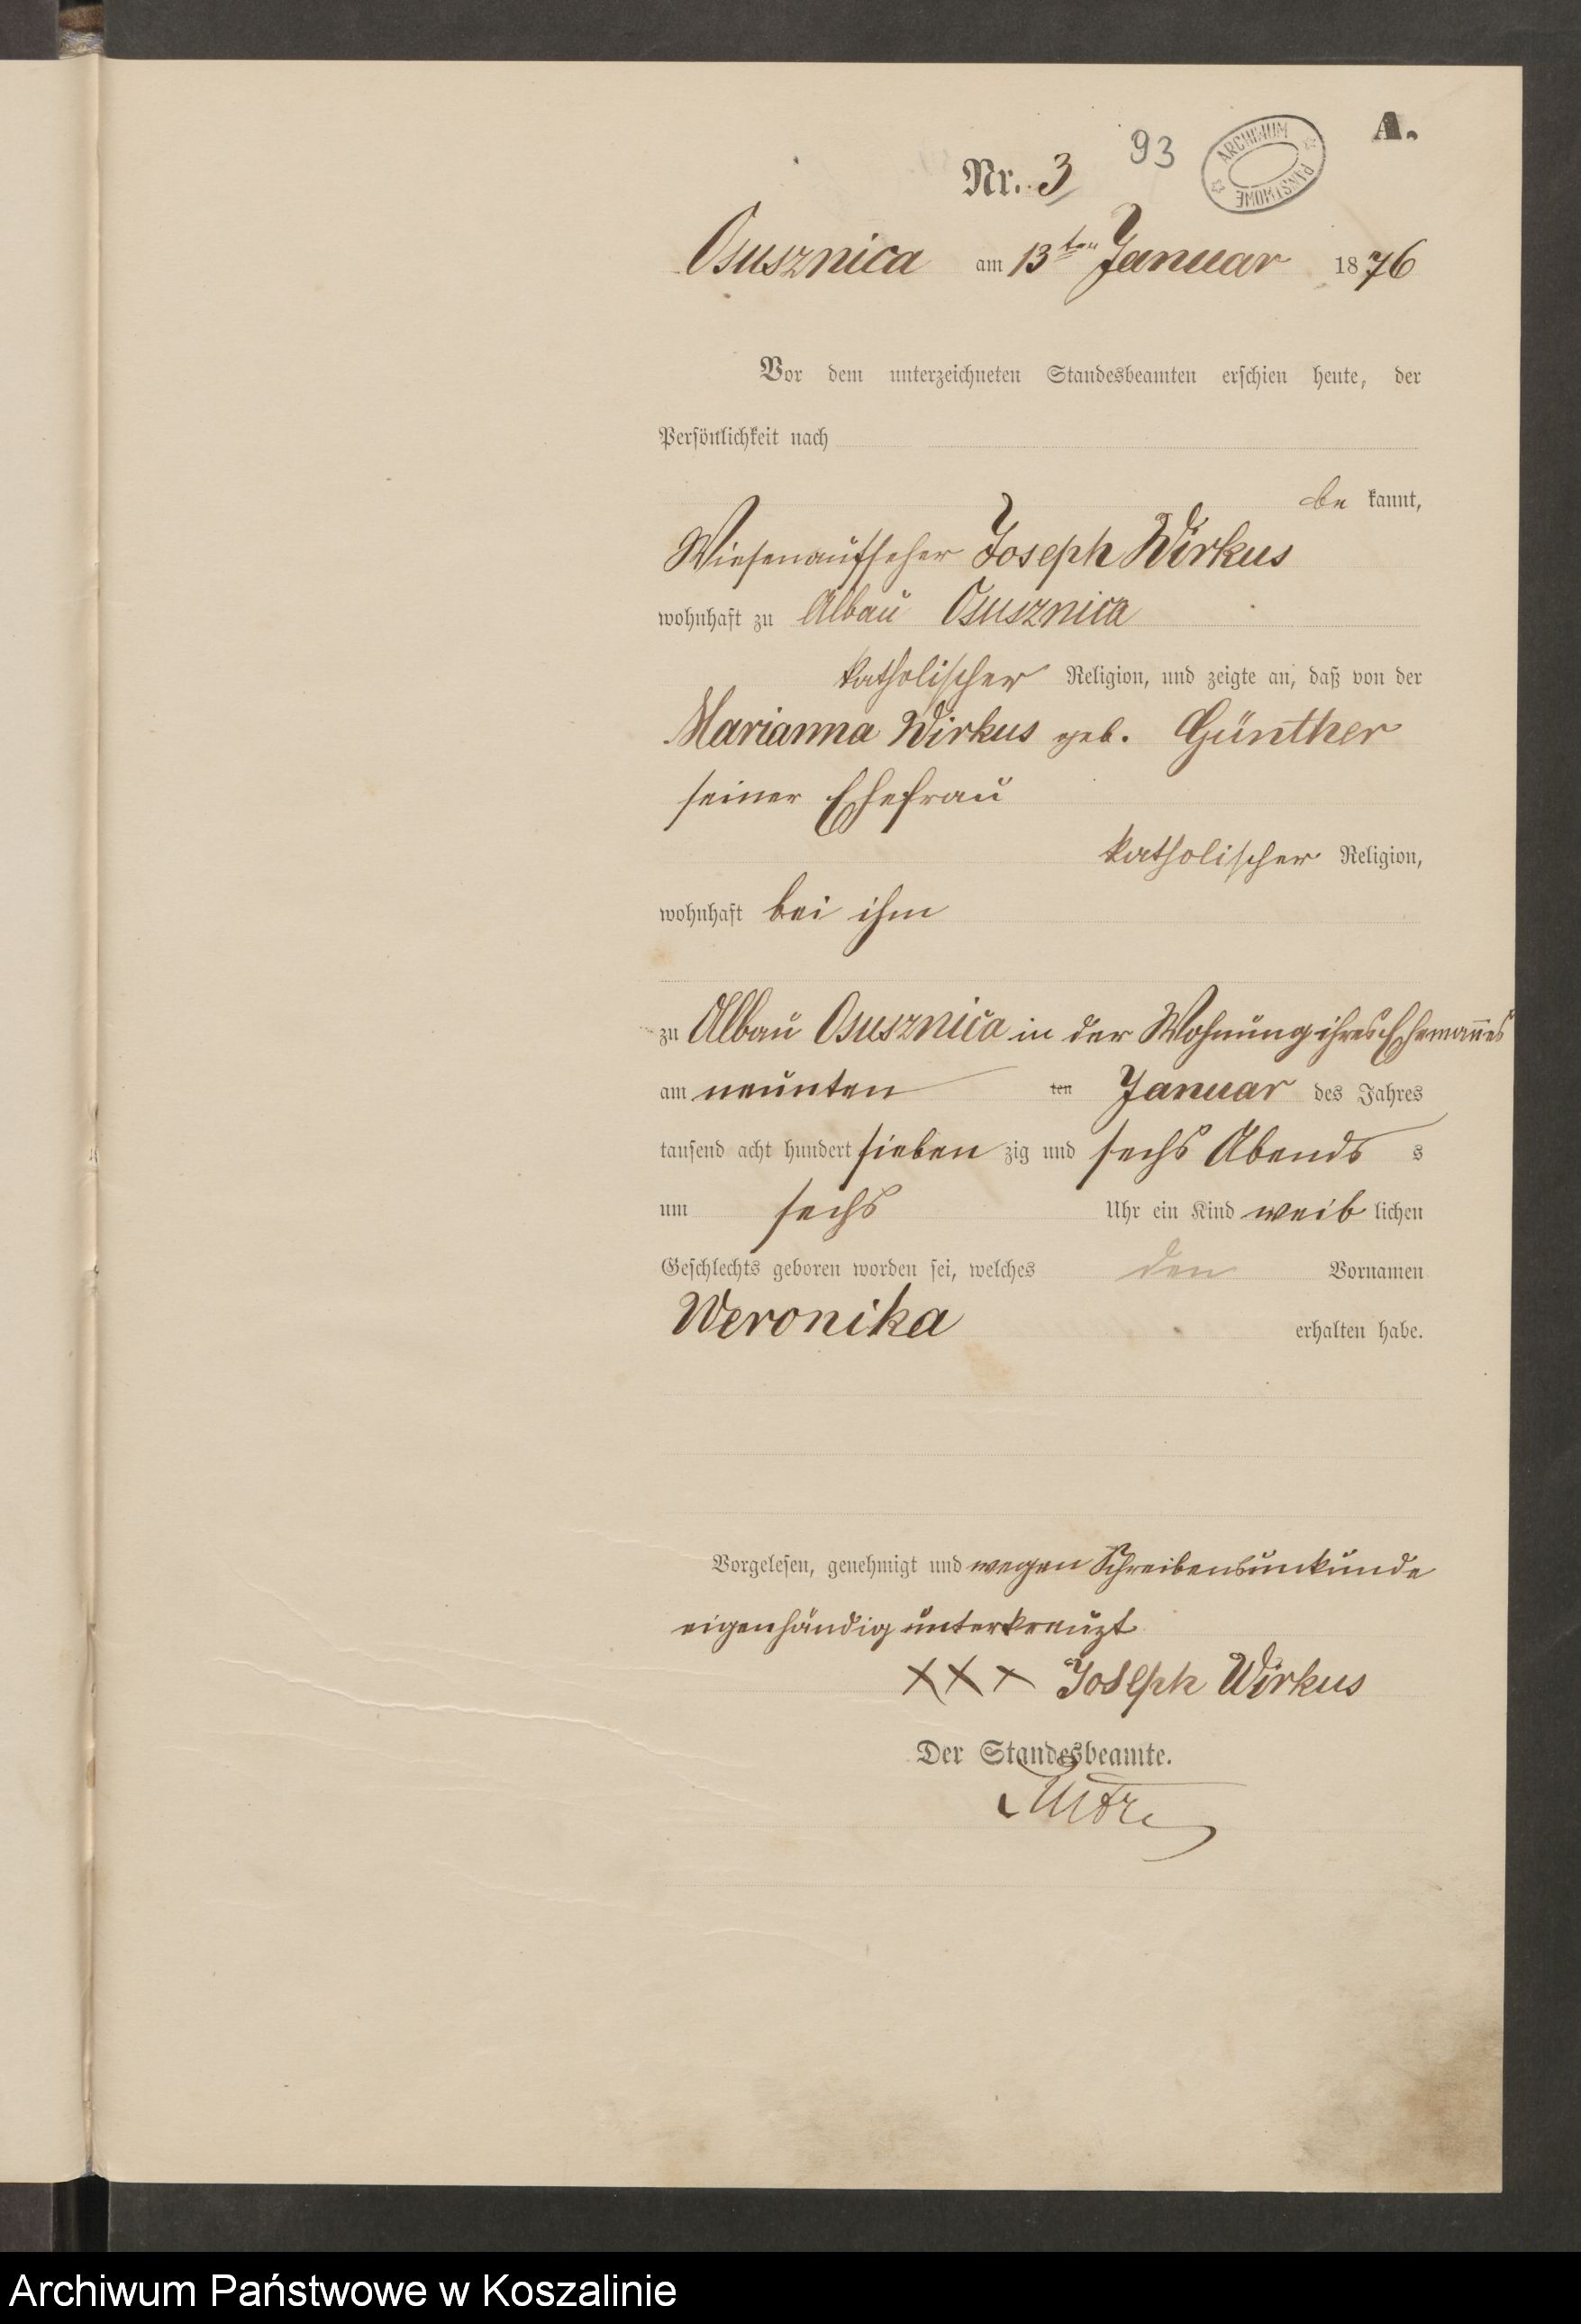 A.
93
ARCHIWUM PAŃSTWOWE
Nr. 3
Osusznica am 13ten Januar 1876
Vor dem unterzeichneten Standesbeamten erschien heute, der
Persönlichkeit nach
be kannt,
Wiesenaufseher Joseph Wirkus
wohnhaft zu Albau Osusznica
katholischer Religion, und zeigte an, daß von der
Marianna Wirkus geb. Günther
seiner Ehefrau
katholischer Religion,
wohnhaft bei ihm
zu Albau Osusznica in der Wohnung ihres Ehemannes
am neunten ten Januar des Jahres
tausend acht hundert sieben zig und sechs Abends s
um sechs Uhr ein Kind weib lichen
Geschlechts geboren worden sei, welches den Vornamen
Weronika erhalten habe.
Vorgelesen, genehmigt und wegen Schreibensunkunde
eigenhändig unterkreuzt
XXX Joseph Wirkus
Der Standesbeamte.
Archiwum Państwowe w Koszalinie